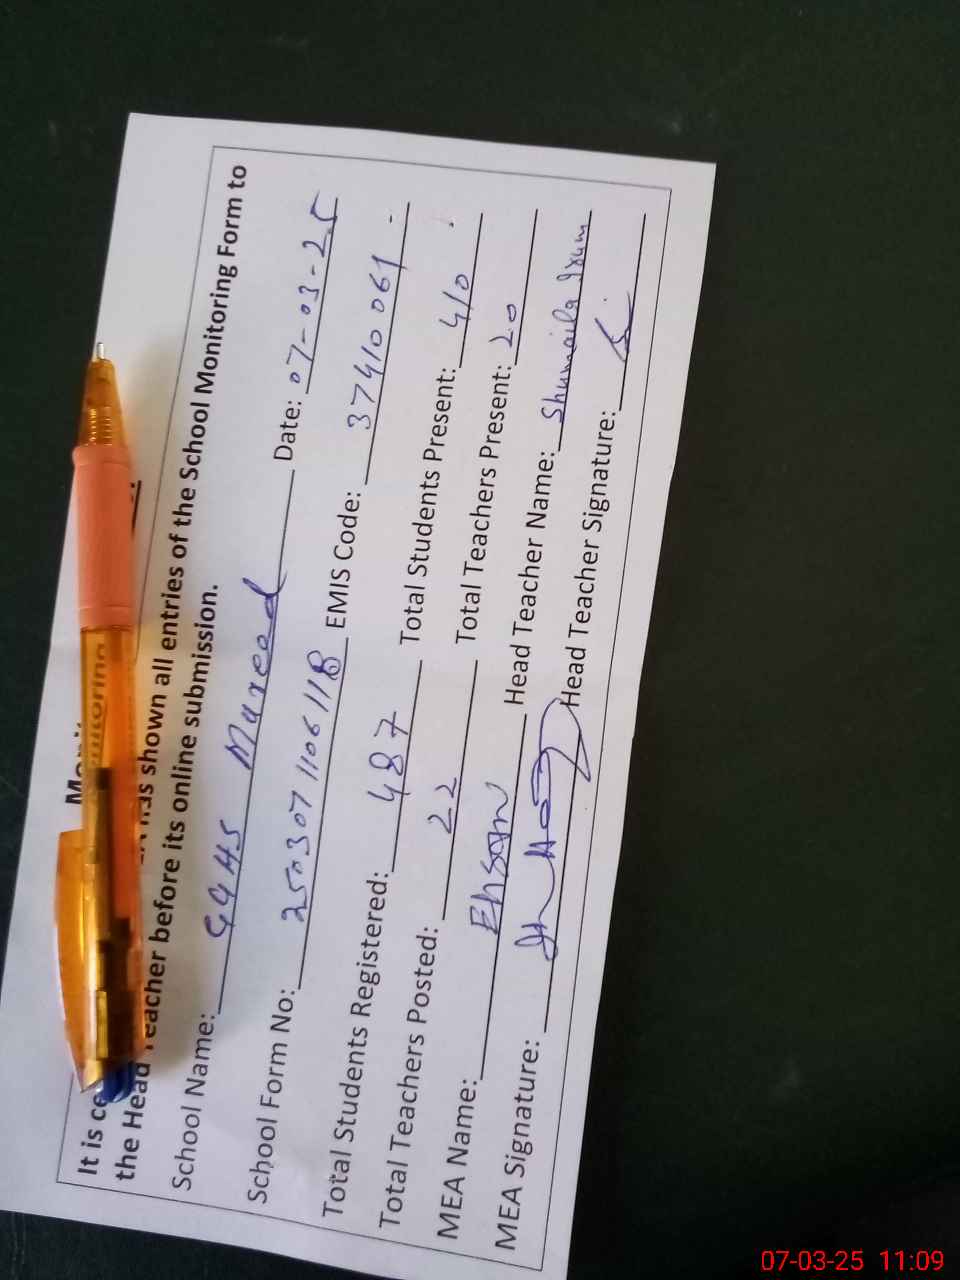 It is
shown all entries of the School Monitoring Form to
the Head Teacher before its online submission.
School Name: GGHS Mureed Date: 07-03-25
School Form No: 250307110611B EMIS Code: 37410061
Total Students Registered: 487 Total Students Present: 410
Total Teachers Posted: 22 Total Teachers Present: 20
MEA Name: Ehsan Head Teacher Name: Shumaila Irum
MEA Signature: Head Teacher Signature:
07-03-25 11:09